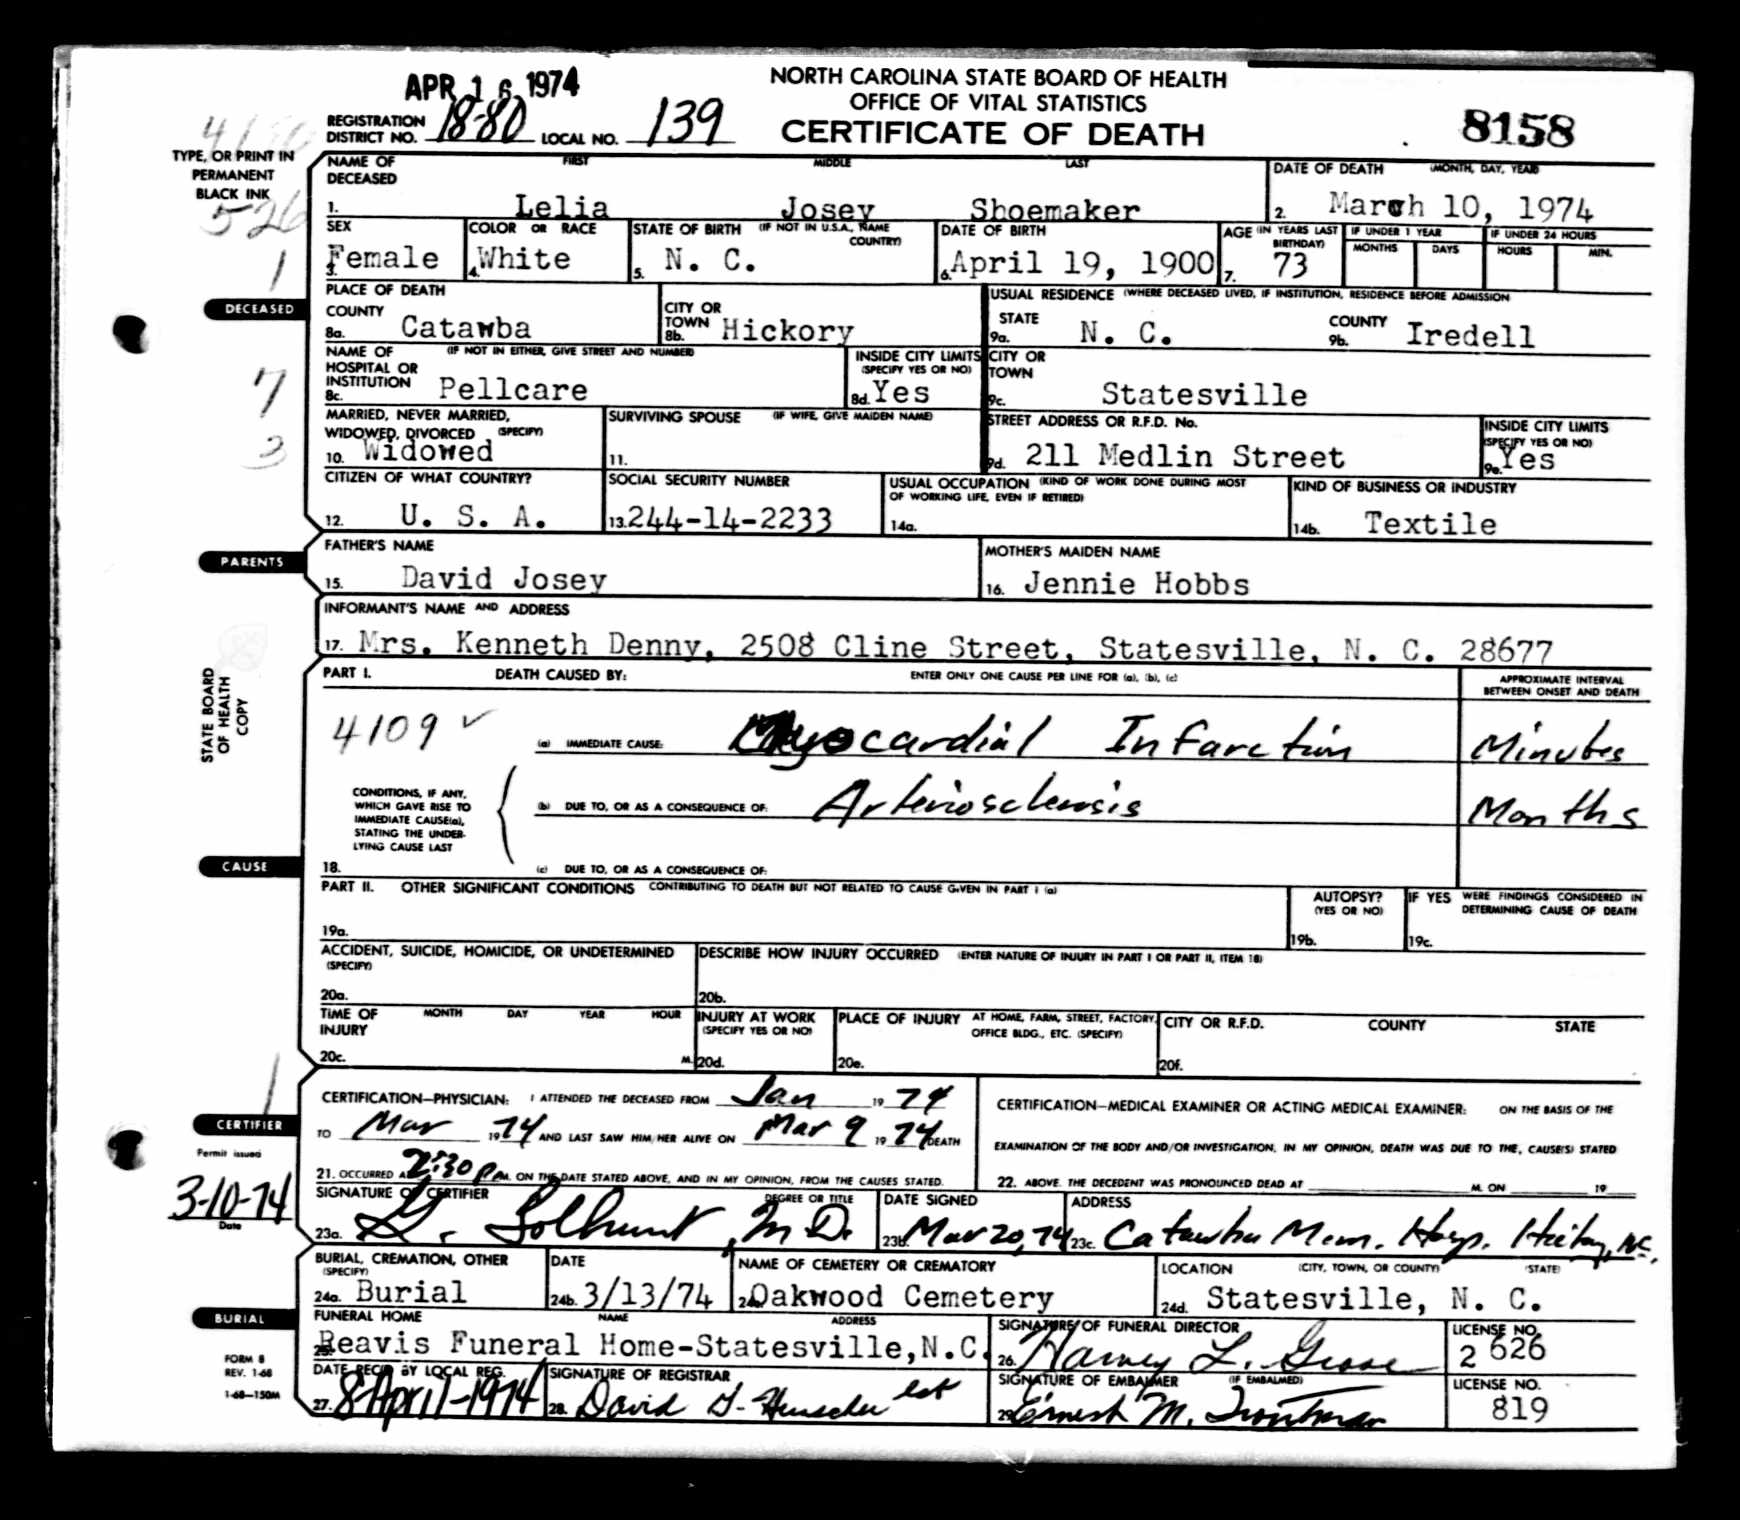 APR 16 1974
NORTH CAROLINA STATE BOARD OF HEALTH
OFFICE OF VITAL STATISTICS
CERTIFICATE OF DEATH
REGISTRATION DISTRICT NO. 18-80 LOCAL NO. 139
8158
TYPE, OR PRINT IN
PERMANENT
BLACK INK
526
1
7
3
DECEASED
NAME OF DECEASED FIRST MIDDLE LAST
1. Lelia Josey Shoemaker
DATE OF DEATH (MONTH, DAY, YEAR)
2. March 10, 1974
SEX
3. Female
COLOR OR RACE
4. White
STATE OF BIRTH (IF NOT IN U.S.A., NAME COUNTRY)
5. N. C.
DATE OF BIRTH
6. April 19, 1900
AGE (IN YEARS LAST BIRTHDAY)
7. 73
IF UNDER 1 YEAR
MONTHS DAYS
IF UNDER 24 HOURS
HOURS MIN.
PLACE OF DEATH
COUNTY
8a. Catawba
CITY OR TOWN
8b. Hickory
USUAL RESIDENCE (WHERE DECEASED LIVED, IF INSTITUTION, RESIDENCE BEFORE ADMISSION
STATE
9a. N. C.
COUNTY
9b. Iredell
NAME OF HOSPITAL OR INSTITUTION (IF NOT IN EITHER, GIVE STREET AND NUMBER)
8c. Pellcare
INSIDE CITY LIMITS
(SPECIFY YES OR NO)
8d. Yes
CITY OR TOWN
9c. Statesville
MARRIED, NEVER MARRIED,
WIDOWED, DIVORCED (SPECIFY)
10. Widowed
SURVIVING SPOUSE (IF WIFE, GIVE MAIDEN NAME)
11.
STREET ADDRESS OR R.F.D. No.
9d. 211 Medlin Street
INSIDE CITY LIMITS
(SPECIFY YES OR NO)
9e. Yes
CITIZEN OF WHAT COUNTRY?
12. U. S. A.
SOCIAL SECURITY NUMBER
13. 244-14-2233
USUAL OCCUPATION (KIND OF WORK DONE DURING MOST
OF WORKING LIFE, EVEN IF RETIRED)
14a.
KIND OF BUSINESS OR INDUSTRY
14b. Textile
PARENTS
FATHER'S NAME
15. David Josey
MOTHER'S MAIDEN NAME
16. Jennie Hobbs
INFORMANT'S NAME AND ADDRESS
17. Mrs. Kenneth Denny, 2508 Cline Street, Statesville, N. C. 28677
STATE BOARD
OF HEALTH
COPY
PART I. DEATH CAUSED BY: ENTER ONLY ONE CAUSE PER LINE FOR (a), (b), (c)
APPROXIMATE INTERVAL
BETWEEN ONSET AND DEATH
4109 ✓
(a) IMMEDIATE CAUSE: Myocardial Infarction Minutes
CONDITIONS, IF ANY,
WHICH GAVE RISE TO
IMMEDIATE CAUSE(a),
STATING THE UNDER-
LYING CAUSE LAST
(b) DUE TO, OR AS A CONSEQUENCE OF: Arteriosclerosis Months
CAUSE
18. (c) DUE TO, OR AS A CONSEQUENCE OF:
PART II. OTHER SIGNIFICANT CONDITIONS CONTRIBUTING TO DEATH BUT NOT RELATED TO CAUSE GIVEN IN PART I (a)
19a.
AUTOPSY?
(YES OR NO)
19b.
IF YES WERE FINDINGS CONSIDERED IN
DETERMINING CAUSE OF DEATH
19c.
ACCIDENT, SUICIDE, HOMICIDE, OR UNDETERMINED
(SPECIFY)
20a.
DESCRIBE HOW INJURY OCCURRED (ENTER NATURE OF INJURY IN PART I OR PART II, ITEM 18)
20b.
TIME OF INJURY MONTH DAY YEAR HOUR
20c. M.
INJURY AT WORK
(SPECIFY YES OR NO)
20d.
PLACE OF INJURY AT HOME, FARM, STREET, FACTORY,
OFFICE BLDG., ETC. (SPECIFY)
20e.
CITY OR R.F.D. COUNTY STATE
20f.
1
CERTIFIER
CERTIFICATION—PHYSICIAN: I ATTENDED THE DECEASED FROM Jan 19 74
TO Mar 19 74 AND LAST SAW HIM/HER ALIVE ON Mar 9 19 74 DEATH
21. OCCURRED AT 2:30 P M. ON THE DATE STATED ABOVE, AND IN MY OPINION, FROM THE CAUSES STATED.
CERTIFICATION—MEDICAL EXAMINER OR ACTING MEDICAL EXAMINER: ON THE BASIS OF THE
EXAMINATION OF THE BODY AND/OR INVESTIGATION, IN MY OPINION, DEATH WAS DUE TO THE, CAUSE(S) STATED
22. ABOVE. THE DECEDENT WAS PRONOUNCED DEAD AT M. ON 19
Permit issued
3-10-74
Date
SIGNATURE OF CERTIFIER DEGREE OR TITLE
23a. M.D.
DATE SIGNED
23b. Mar 20, 74
ADDRESS
23c. Catawba Mem. Hosp. Hickory, N.C.
BURIAL, CREMATION, OTHER
(SPECIFY)
24a. Burial
DATE
24b. 3/13/74
NAME OF CEMETERY OR CREMATORY
Oakwood Cemetery
LOCATION (CITY, TOWN, OR COUNTY) (STATE)
24d. Statesville, N. C.
BURIAL
FUNERAL HOME NAME ADDRESS
25. Reavis Funeral Home-Statesville, N.C.
SIGNATURE OF FUNERAL DIRECTOR
26. Harvey L.
LICENSE NO.
2 626
FORM 8
REV. 1-68
1-68—150M
DATE REC'D BY LOCAL REG.
27. 8-April-1974
SIGNATURE OF REGISTRAR
28. David
SIGNATURE OF EMBALMER (IF EMBALMED)
29. Ernest M. Troutman
LICENSE NO.
819